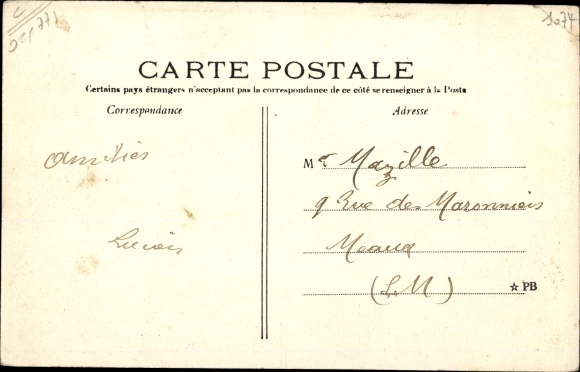 1274
CARTE POSTALE
Certains pays étrangers n'acceptant pas la correspondance de ce côté se renseigner à la Poste
Correspondance
Adresse
Amitiés
Lucien
Mr Mazille
9 Rue des Maronniers
Meaux
(S.M)
☆ PB